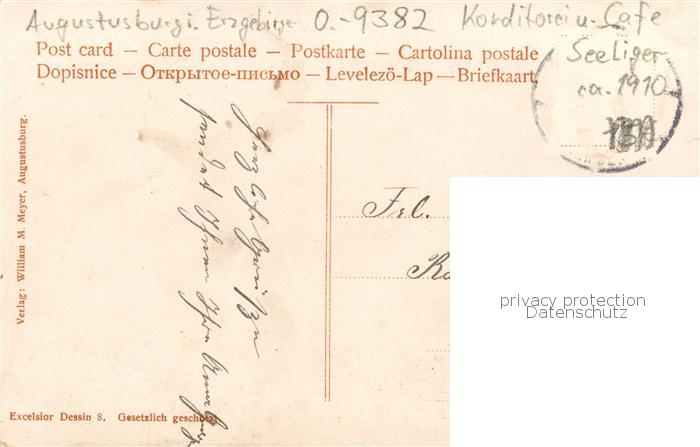 Augustusburg i. Erzgebirge O.-9382 Konditorei u. Cafe
Seeliger
ca. 1910
Post card – Carte postale – Postkarte – Cartolina postale
Dopisnice – Открытое-письмо – Levelezö-Lap – Briefkaart
Verlag: William M. Meyer, Augustusburg.
Herzliche Grüße
sendet Ihnen Ihre
Frl.
privacy protection
Datenschutz
Excelsior Dessin 8. Gesetzlich